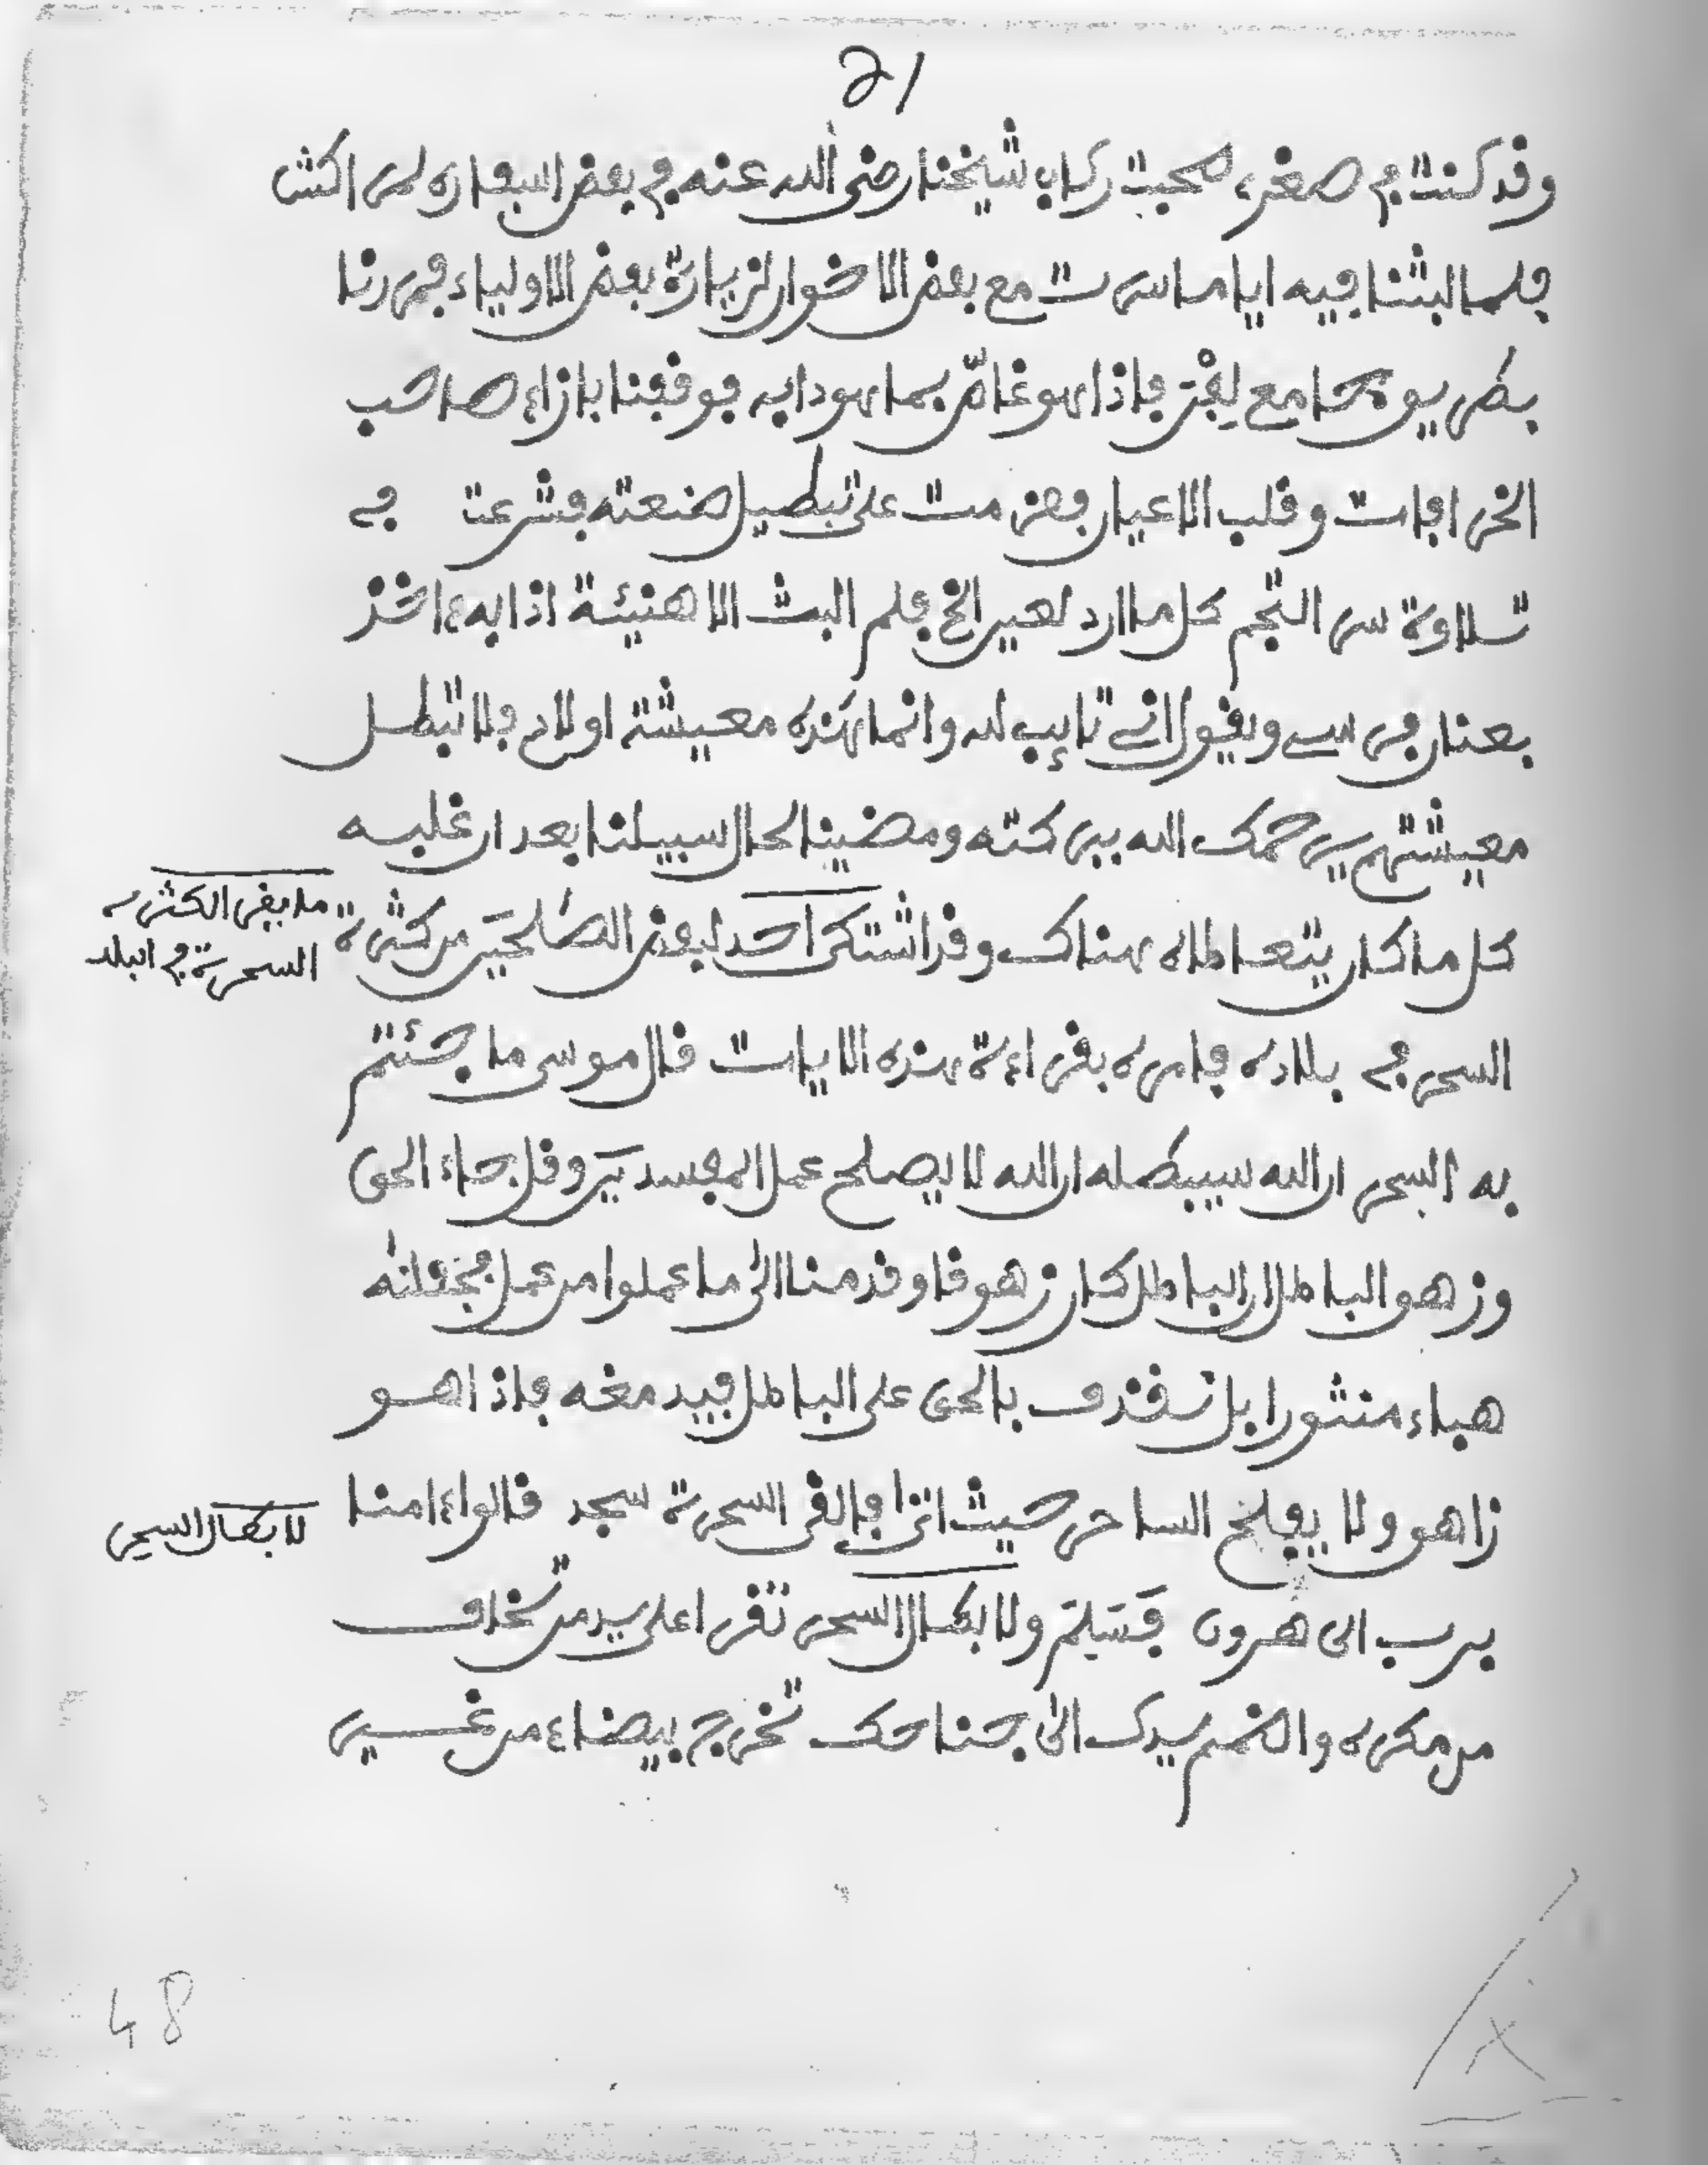 21
وقد كنت في صغري صحبت ركاب شيخنا رضي الله عنه في بعض اسفاره لمراكش
فلما لبثنا فيه اياما سرت مع بعض الاخوان لزيارة بعض الاولياء فمررنا
بطريق بجامع الفنى فاذا هو غاص بما هو دابه فوقفنا بازاء صاحب
الخرافات وقلب الاعيان فعزمت على تبطيل صنعته فشرعت في
تلاوة سر النجم كل ما ارد لعير الخ فلم البث الا هنيئة اذا به ءاخذ
بعنان فرسي ويقول اني تايب لله وانما هذه معيشة اولادي فلا تبطل
معيشتهم يرحمك الله ببركته ومضينا لحال سبيلنا بعد ان غلبه
كل ما كان يتعاطاه هناك وقد اشتكى احد لبعض الصلحين من كثرة
ما يفي الكثرة
السحرة في البلد
السحر في بلاده فامره بقراءة هذه الايات قال موسى ما جئتم
به السحر ان الله سيبطله ان الله لا يصلح عمل المفسدين وقل جاء الحق
وزهق الباطل ان الباطل كان زهوقا وقدمنا الى ما عملوا من عمل فجعلنه
هباء منثورا بل نقذف بالحق على الباطل فيدمغه فاذا هو
زاهق ولا يفلح الساحر حيث اتى فالقى السحرة سجد قالوا ءامنا
لابطال السحر
برب الى هرون فتسلم ولابطال السحر تقرا على يد من تخاف
من مكره واضمم يدك الى جناحك تخرج بيضاء من غير
48